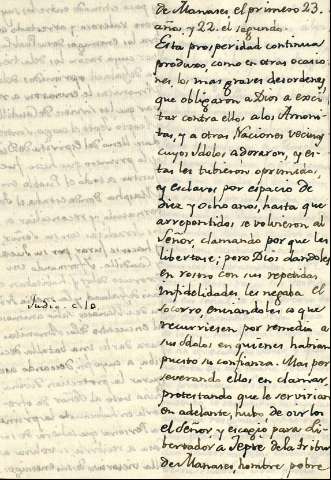 de Manases el primero 23.
años, y 22. el segundo.
Esta prosperidad continua
produxo, como en otras ocasio-
nes, los mas graves desordenes,
que obligaron a Dios a exci-
tar contra ellos a los Amoni-
tas, y a otras Naciones vecinas
cuyos Idolos adoraron, y es-
tas les tubieron oprimidos,
y esclavos por espacio de
diez y ocho años, hasta que
arrepentidos se volvieron al
Señor, clamando por que les
libertase; pero Dios dandoles
en rostro con sus repetidas
infidelidades, les negaba el
Judic. c. 10.
socorro, enviandoles a que
recurriesen por remedio a
sus Idolos en quienes habian
puesto su confianza. Mas per-
severando ellos en clamar,
protestando que le servirian
en adelante, hubo de oirlos
el Señor, y escogio para Li-
bertador a Jepte de la tribu
de Manases, hombre pobre